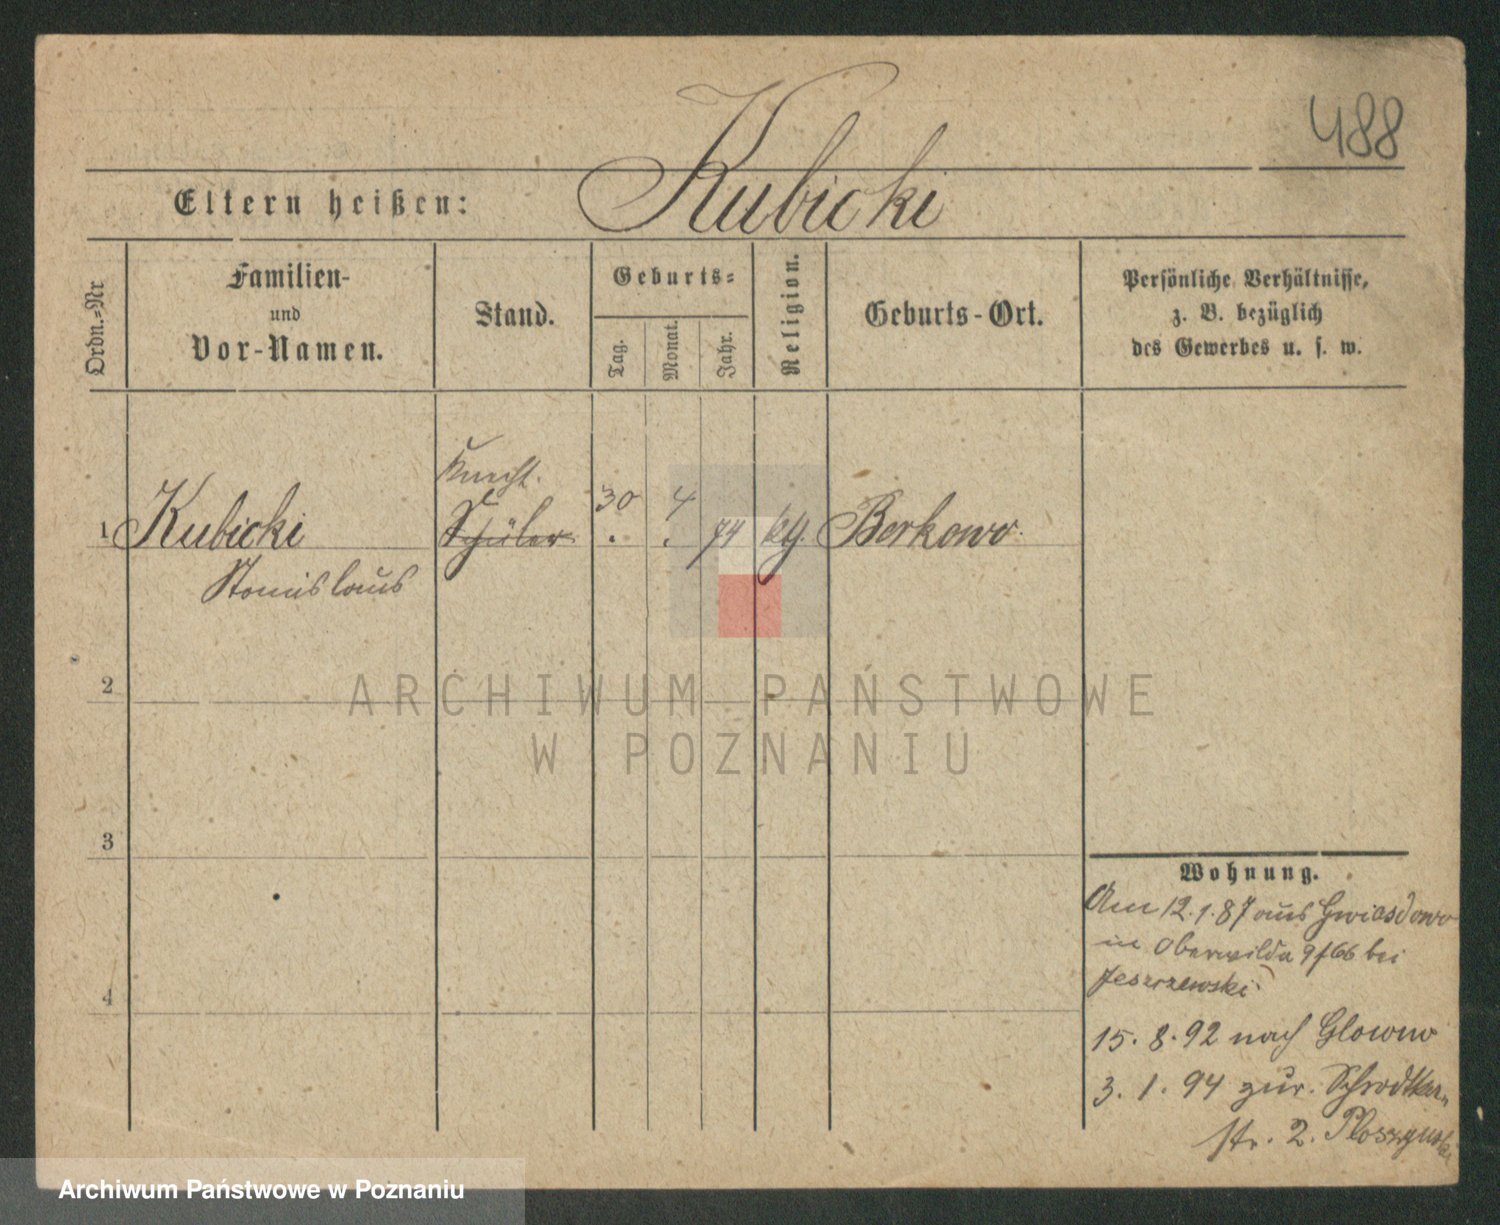 488
Kubicki
Eltern heißen:
Ordn.-Nr
Familien-
und
Vor-Namen.
Stand.
Geburts-
Tag.
Monat.
Jahr.
Religion.
Geburts-Ort.
Persönliche Verhältnisse,
z. B. bezüglich
des Gewerbes u. s. w.
Knecht.
1 Kubicki Schüler 30 4 74 ktg. Berkowo
Stanislaus
2
3
4
ARCHIWUM PAŃSTWOWE
W POZNANIU
Wohnung.
Am 12.1.87 aus Gwiasdowo
in Oberwilda 9/66 bei
Jeszrzewski
15. 8. 92 nach Glowno
3. 1. 94 zur. Schrodtker
str. 2.
Archiwum Państwowe w Poznaniu